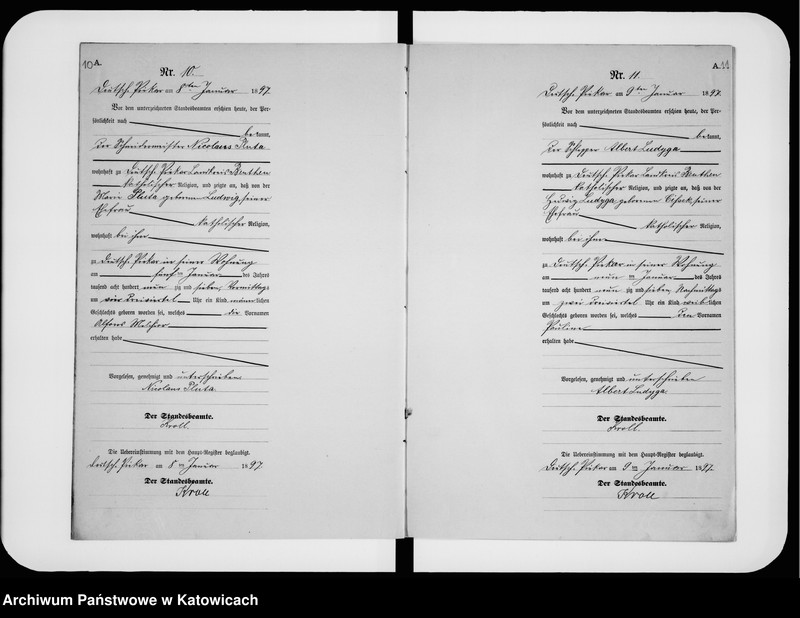 10 A.
Nr. 10.
Deutsch Piekar am 8ten Januar 1897.
Vor dem unterzeichneten Standesbeamten erschien heute, der Per-
sönlichkeit nach
bekannt,
der Schneidermeister Nicolaus Pluta
wohnhaft zu Deutsch Piekar Landkreis Beuthen
katholischer Religion, und zeigte an, daß von der
Marie Pluta geborenen Ludwig, seiner
Ehefrau
katholischer Religion,
wohnhaft bei ihm
zu Deutsch Piekar in seiner Wohnung
am fünften Januar des Jahres
tausend acht hundert neunzig und sieben, Vormittags
um vier dreiviertel Uhr ein Kind männlichen
Geschlechts geboren worden sei, welches die Vornamen
Alfons Melchior
erhalten habe
Vorgelesen, genehmigt und unterschrieben
Nicolaus Pluta.
Der Standesbeamte.
Kroll.
Die Uebereinstimmung mit dem Haupt-Register beglaubigt.
Deutsch Piekar am 8ten Januar 1897.
Der Standesbeamte.
Kroll
A. 11
Nr. 11
Deutsch Piekar am 9ten Januar 1897.
Vor dem unterzeichneten Standesbeamten erschien heute, der Per-
sönlichkeit nach
bekannt,
der Albert Ludyga
wohnhaft zu Deutsch Piekar Landkreis Beuthen
katholischer Religion, und zeigte an, daß von der
Hedwig Ludyga geborenen seiner
Ehefrau
katholischer Religion,
wohnhaft bei ihm
zu Deutsch Piekar in seiner Wohnung
am neunten Januar des Jahres
tausend acht hundert neunzig und sieben, Nachmittags
um zwei dreiviertel Uhr ein Kind weiblichen
Geschlechts geboren worden sei, welches den Vornamen
Pauline
erhalten habe
Vorgelesen, genehmigt und unterschrieben
Albert Ludyga
Der Standesbeamte.
Kroll.
Die Uebereinstimmung mit dem Haupt-Register beglaubigt.
Deutsch Piekar am 9ten Januar 1897.
Der Standesbeamte.
Kroll
Archiwum Państwowe w Katowicach